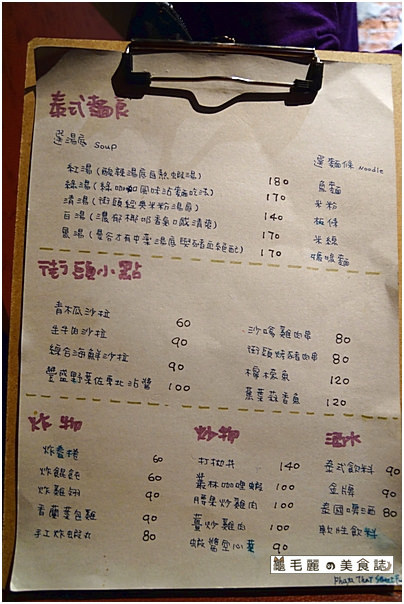 泰式麵食
選湯底 Soup
選麵條 Noodle
紅湯(酸辣湯底自熬蝦湯) 180
綠湯(綠咖哩風味沾麵吃法) 170
清湯(街頭經典米粉湯底) 170
白湯(濃郁椰奶香口感清爽) 140
黑湯 170
魚麵
米粉
板條
米線
媽媽麵
街頭小點
青木瓜沙拉 60
生牛肉沙拉 90
綜合海鮮沙拉 90
豐盛野菜佐東北沾醬 100
沙嗲雞肉串 80
街頭烤豬肉串 80
檸檬魚 120
蕉葉蒜香魚 120
炸物
炸春捲 60
炸餛飩 60
炸雞翅 90
香蘭葉包雞 90
手工炸蝦丸 80
炒物
打拋井 140
叢林咖哩蝦 100
腰果炒雞肉 100
薑炒雞肉 100
蝦醬空心菜 90
酒水
泰式飲料 90
金牌 90
泰國啤酒 80
軟性飲料
毛麗の美食誌